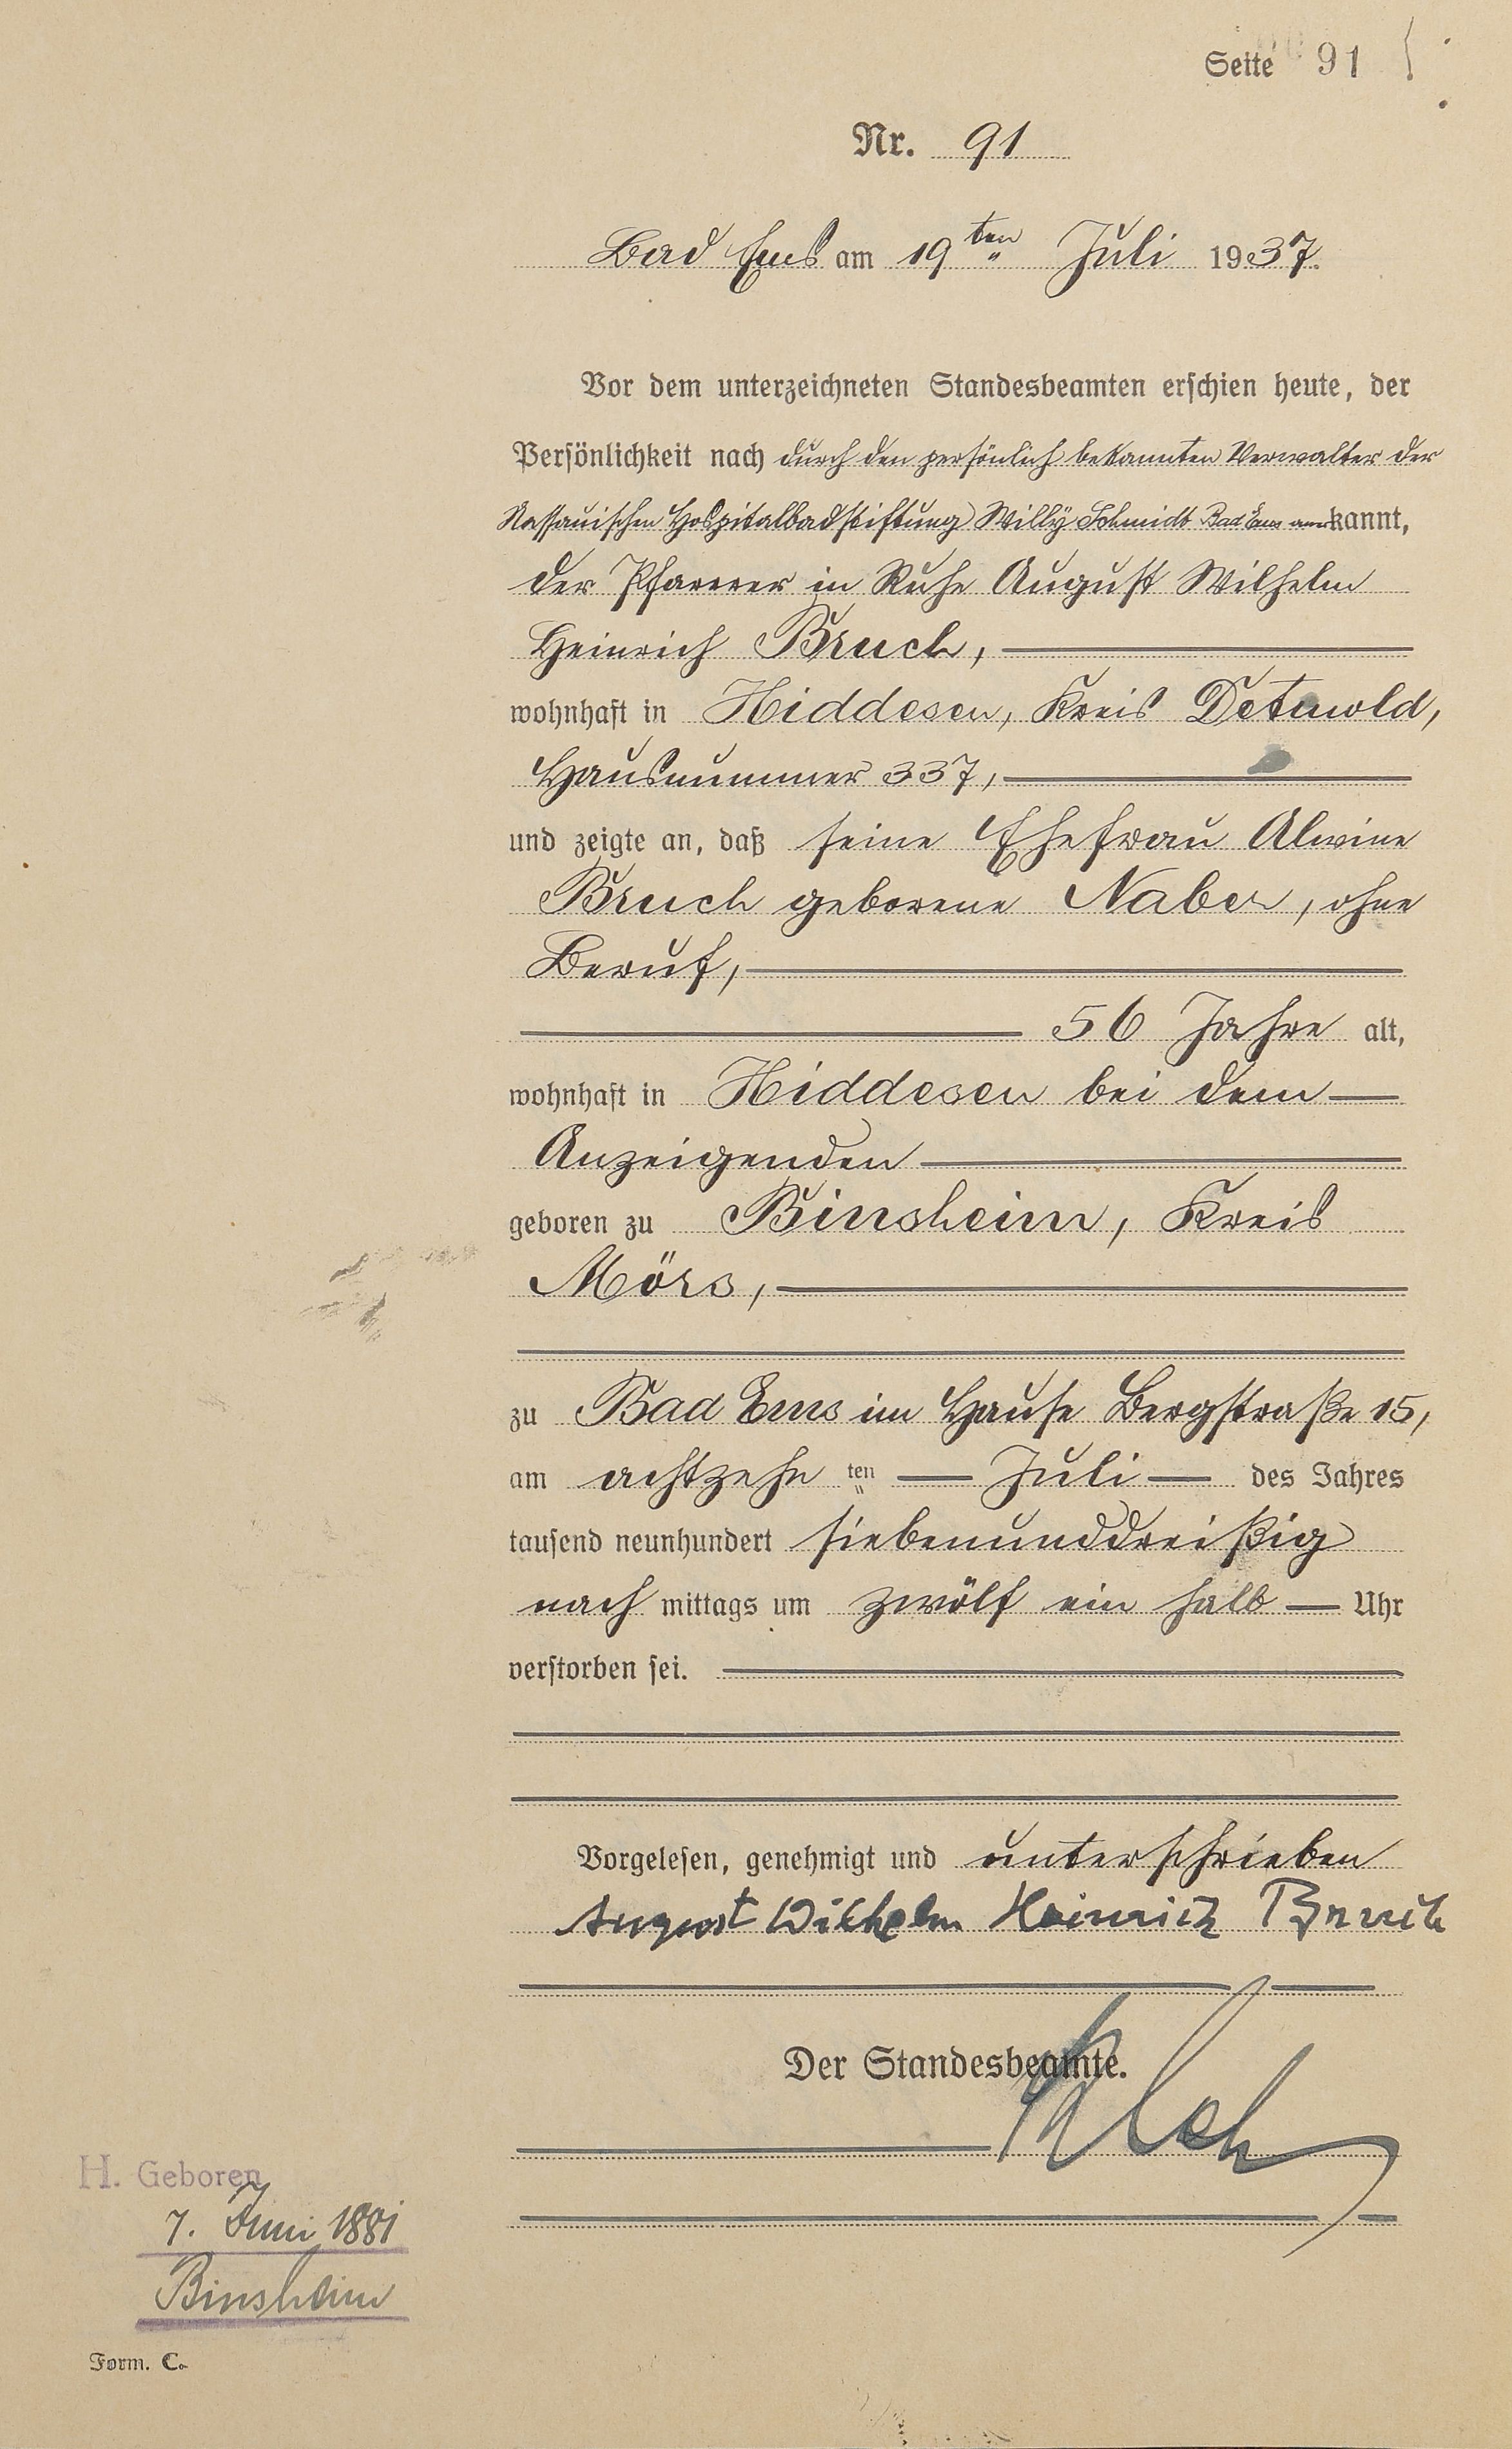 Seite 91
Nr. 91
Bad Ems am 19ten Juli 1937.
Vor dem unterzeichneten Standesbeamten erschien heute, der
Persönlichkeit nach durch den persönlich bekannten Verwalter der
Nassauischen Hospitalbadstiftung Willy Schmidt Bad Ems anerkannt,
der Pfarrer in Ruhe August Wilhelm
Heinrich Bruch,
wohnhaft in Hiddesen, Kreis Detmold,
Hausnummer 337,
und zeigte an, daß seine Ehefrau Alwine
Bruch geborene Naber, ohne
Beruf,
56 Jahre alt,
wohnhaft in Hiddesen bei dem
Anzeigenden
geboren zu Binsheim, Kreis
Mörs,
zu Bad Ems im Hause Bergstraße 15,
am achtzehn ten Juli des Jahres
tausend neunhundert siebenunddreißig
nach mittags um zwölf ein halb Uhr
verstorben sei.
Vorgelesen, genehmigt und unterschrieben
August Wilhelm Heinrich Bruch
Der Standesbeamte.
H. Geboren
7. Juni 1881
Binsheim
Form. C.